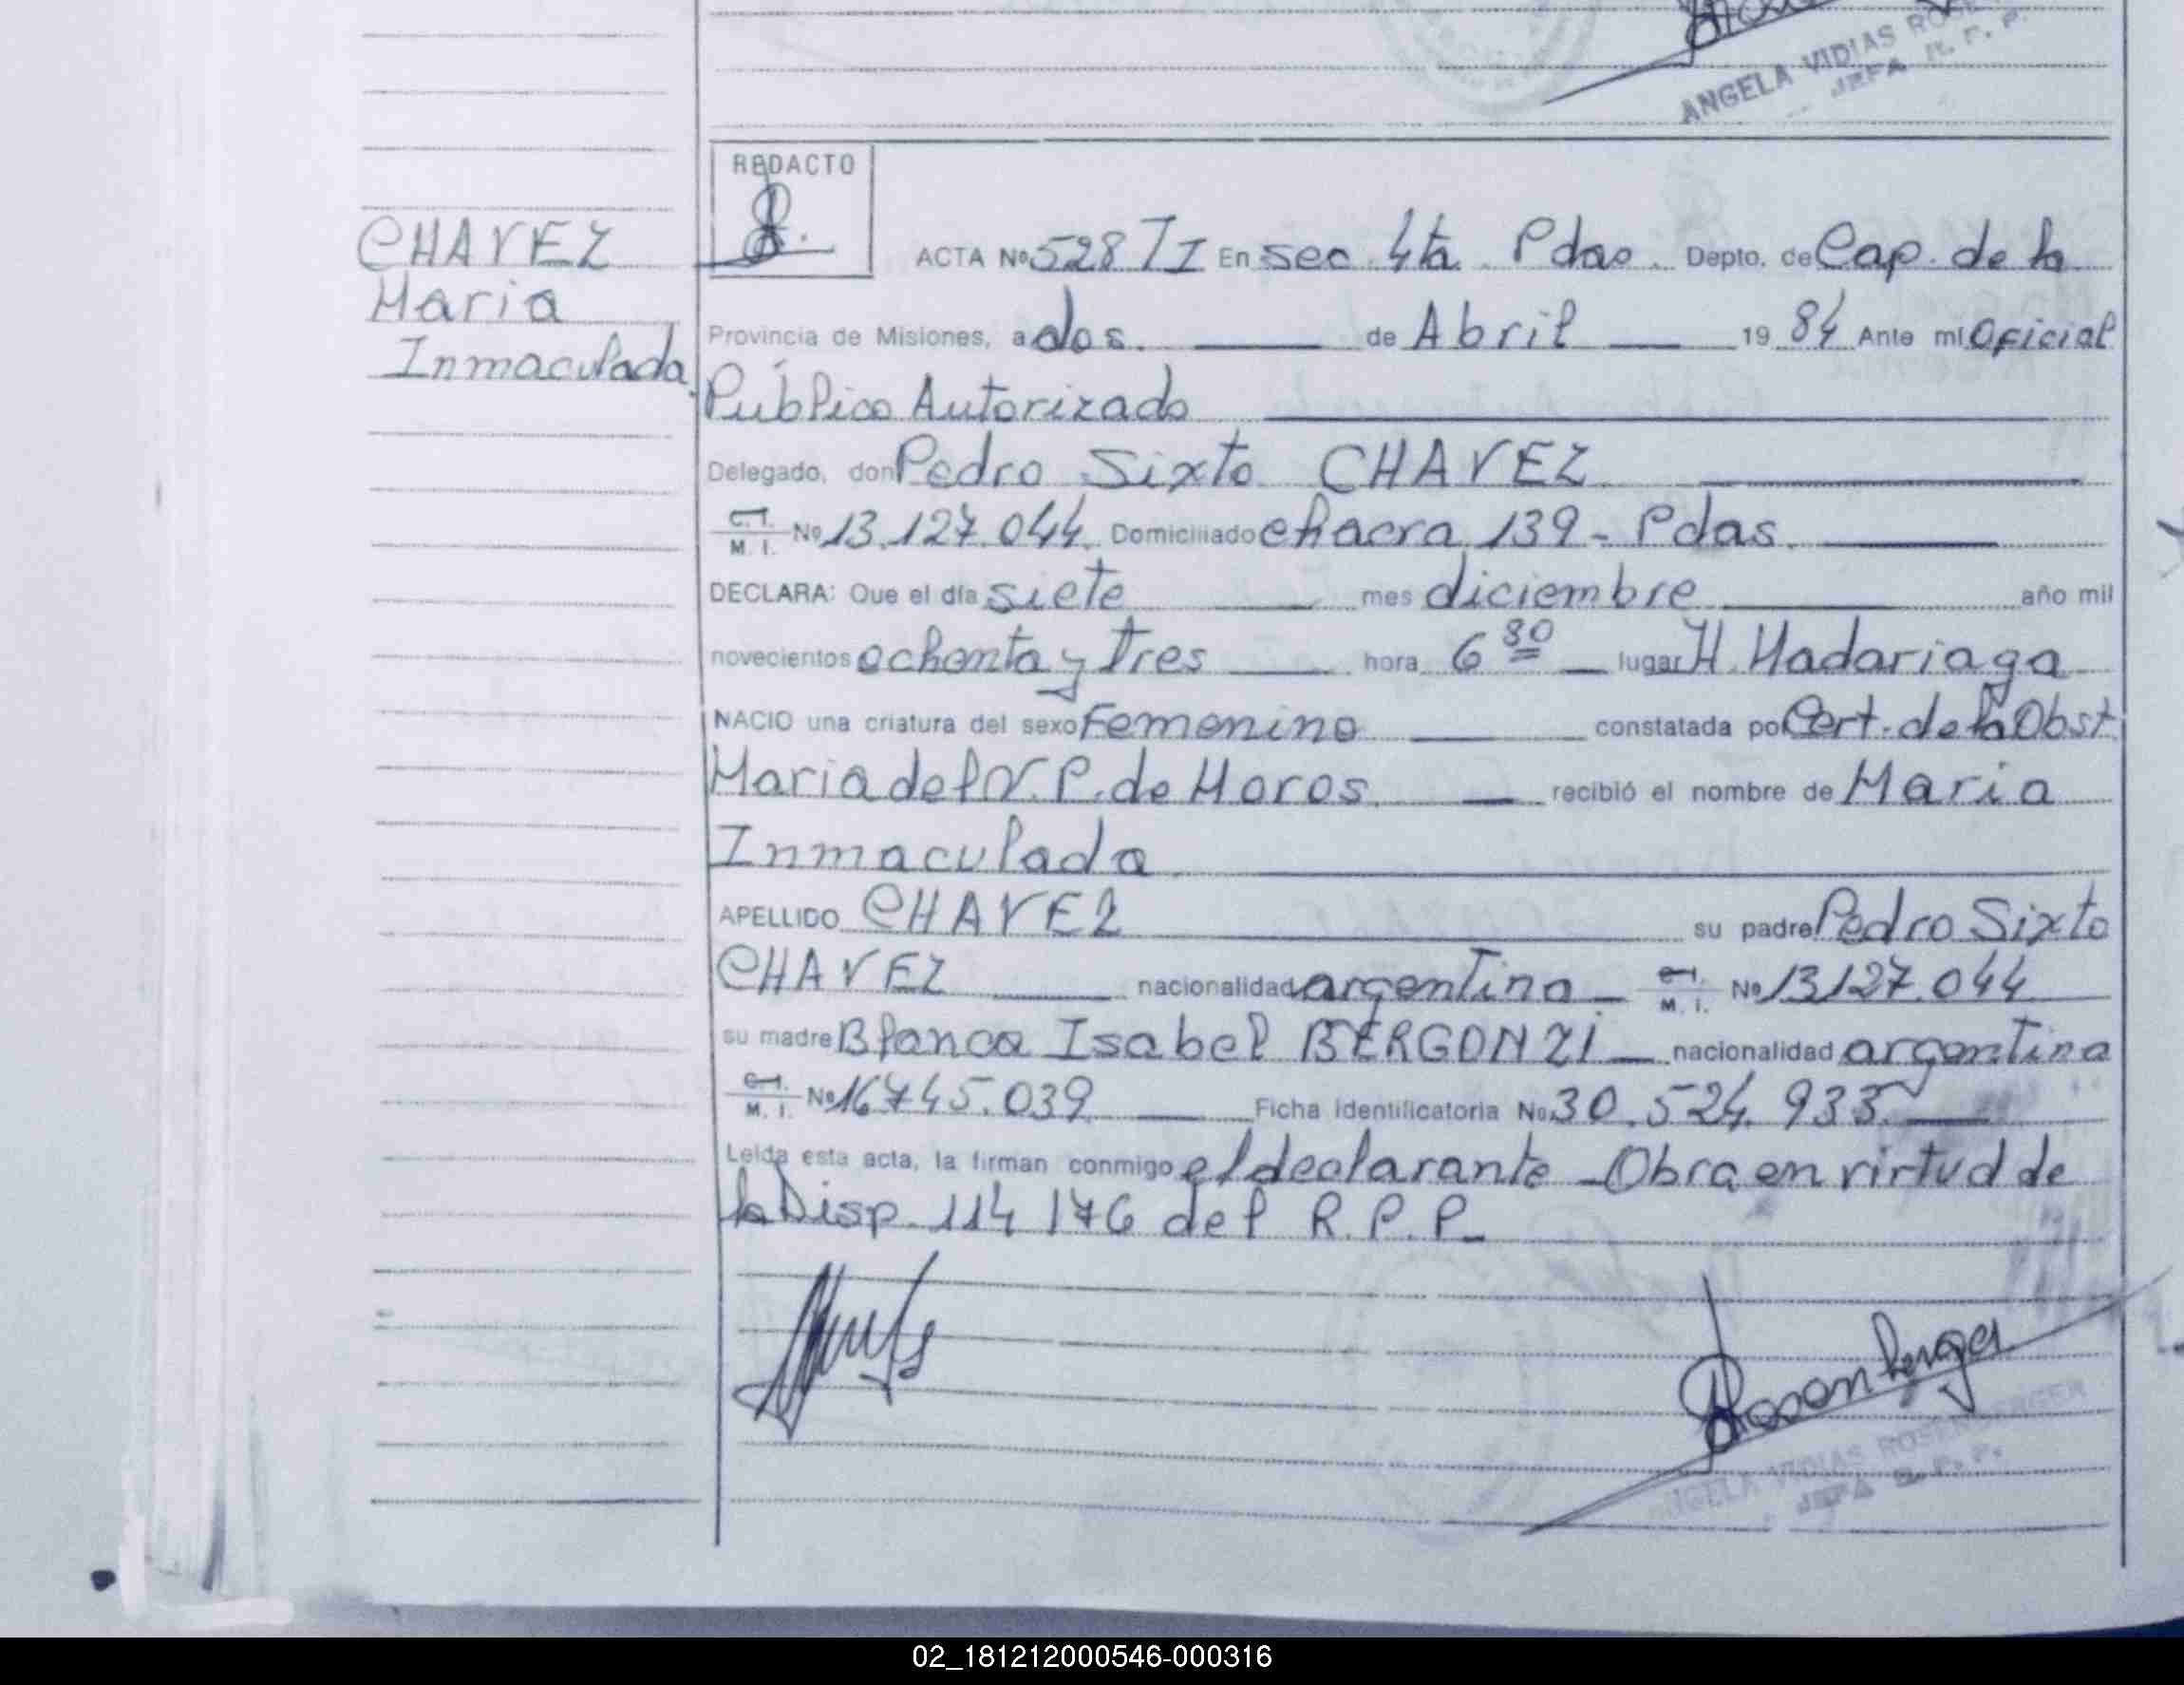 ANGELA VIDIAS
JEFA R. P. P.
REDACTO
CHAVEZ
Maria
Inmaculada
ACTA Nº 528 TI En sec. 4ta. Pdas. Depto. de Cap. de la
Provincia de Misiones, a dos. de Abril 19 84 Ante mi Oficial
Público Autorizado
Delegado, don Pedro Sixto CHAVEZ
C.I. M. I. Nº 13.127.044 Domiciliado chacra 139 - Pdas.
DECLARA: Que el día siete mes diciembre año mil
novecientos ochenta y tres hora 6 30 lugar H. Madariaga
NACIO una criatura del sexo Femenino constatada por Cert. de la Obst.
Maria del V. P. de Moros recibió el nombre de Maria
Inmaculada
APELLIDO CHAVEZ su padre Pedro Sixto
CHAVEZ nacionalidad argentina C.I. M. I. Nº 13.127.044
su madre Blanca Isabel BERGONZI nacionalidad argentina
C.I. M. I. Nº 16745.039 Ficha Identificatoria No. 30.524.933
Leída esta acta, la firman conmigo el declarante - Obra en virtud de
la Disp. 114 176 del R. P. P.
Rosenberger
ANGELA VIDIAS ROSENBERGER
JEFA R. P. P.
02_181212000546-000316